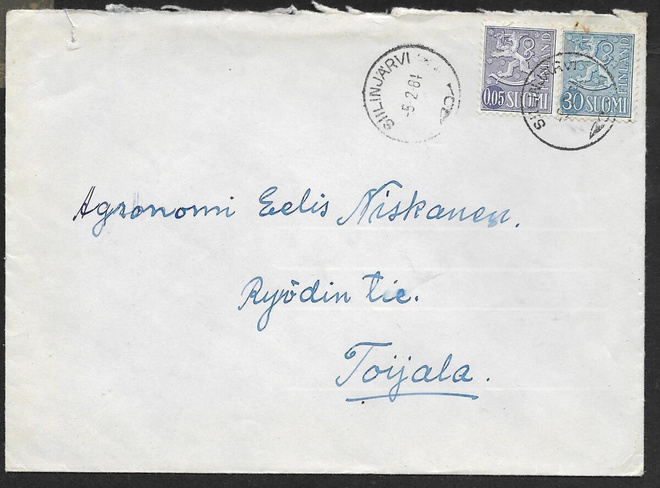 SIILINJÄRVI
-5.2.64
0.05 SUOMI
FINLAND
30 SUOMI
FINLAND
SIILINJÄRVI
Agronomi Eelis Niskanen.
Ryödin tie.
Toijala.